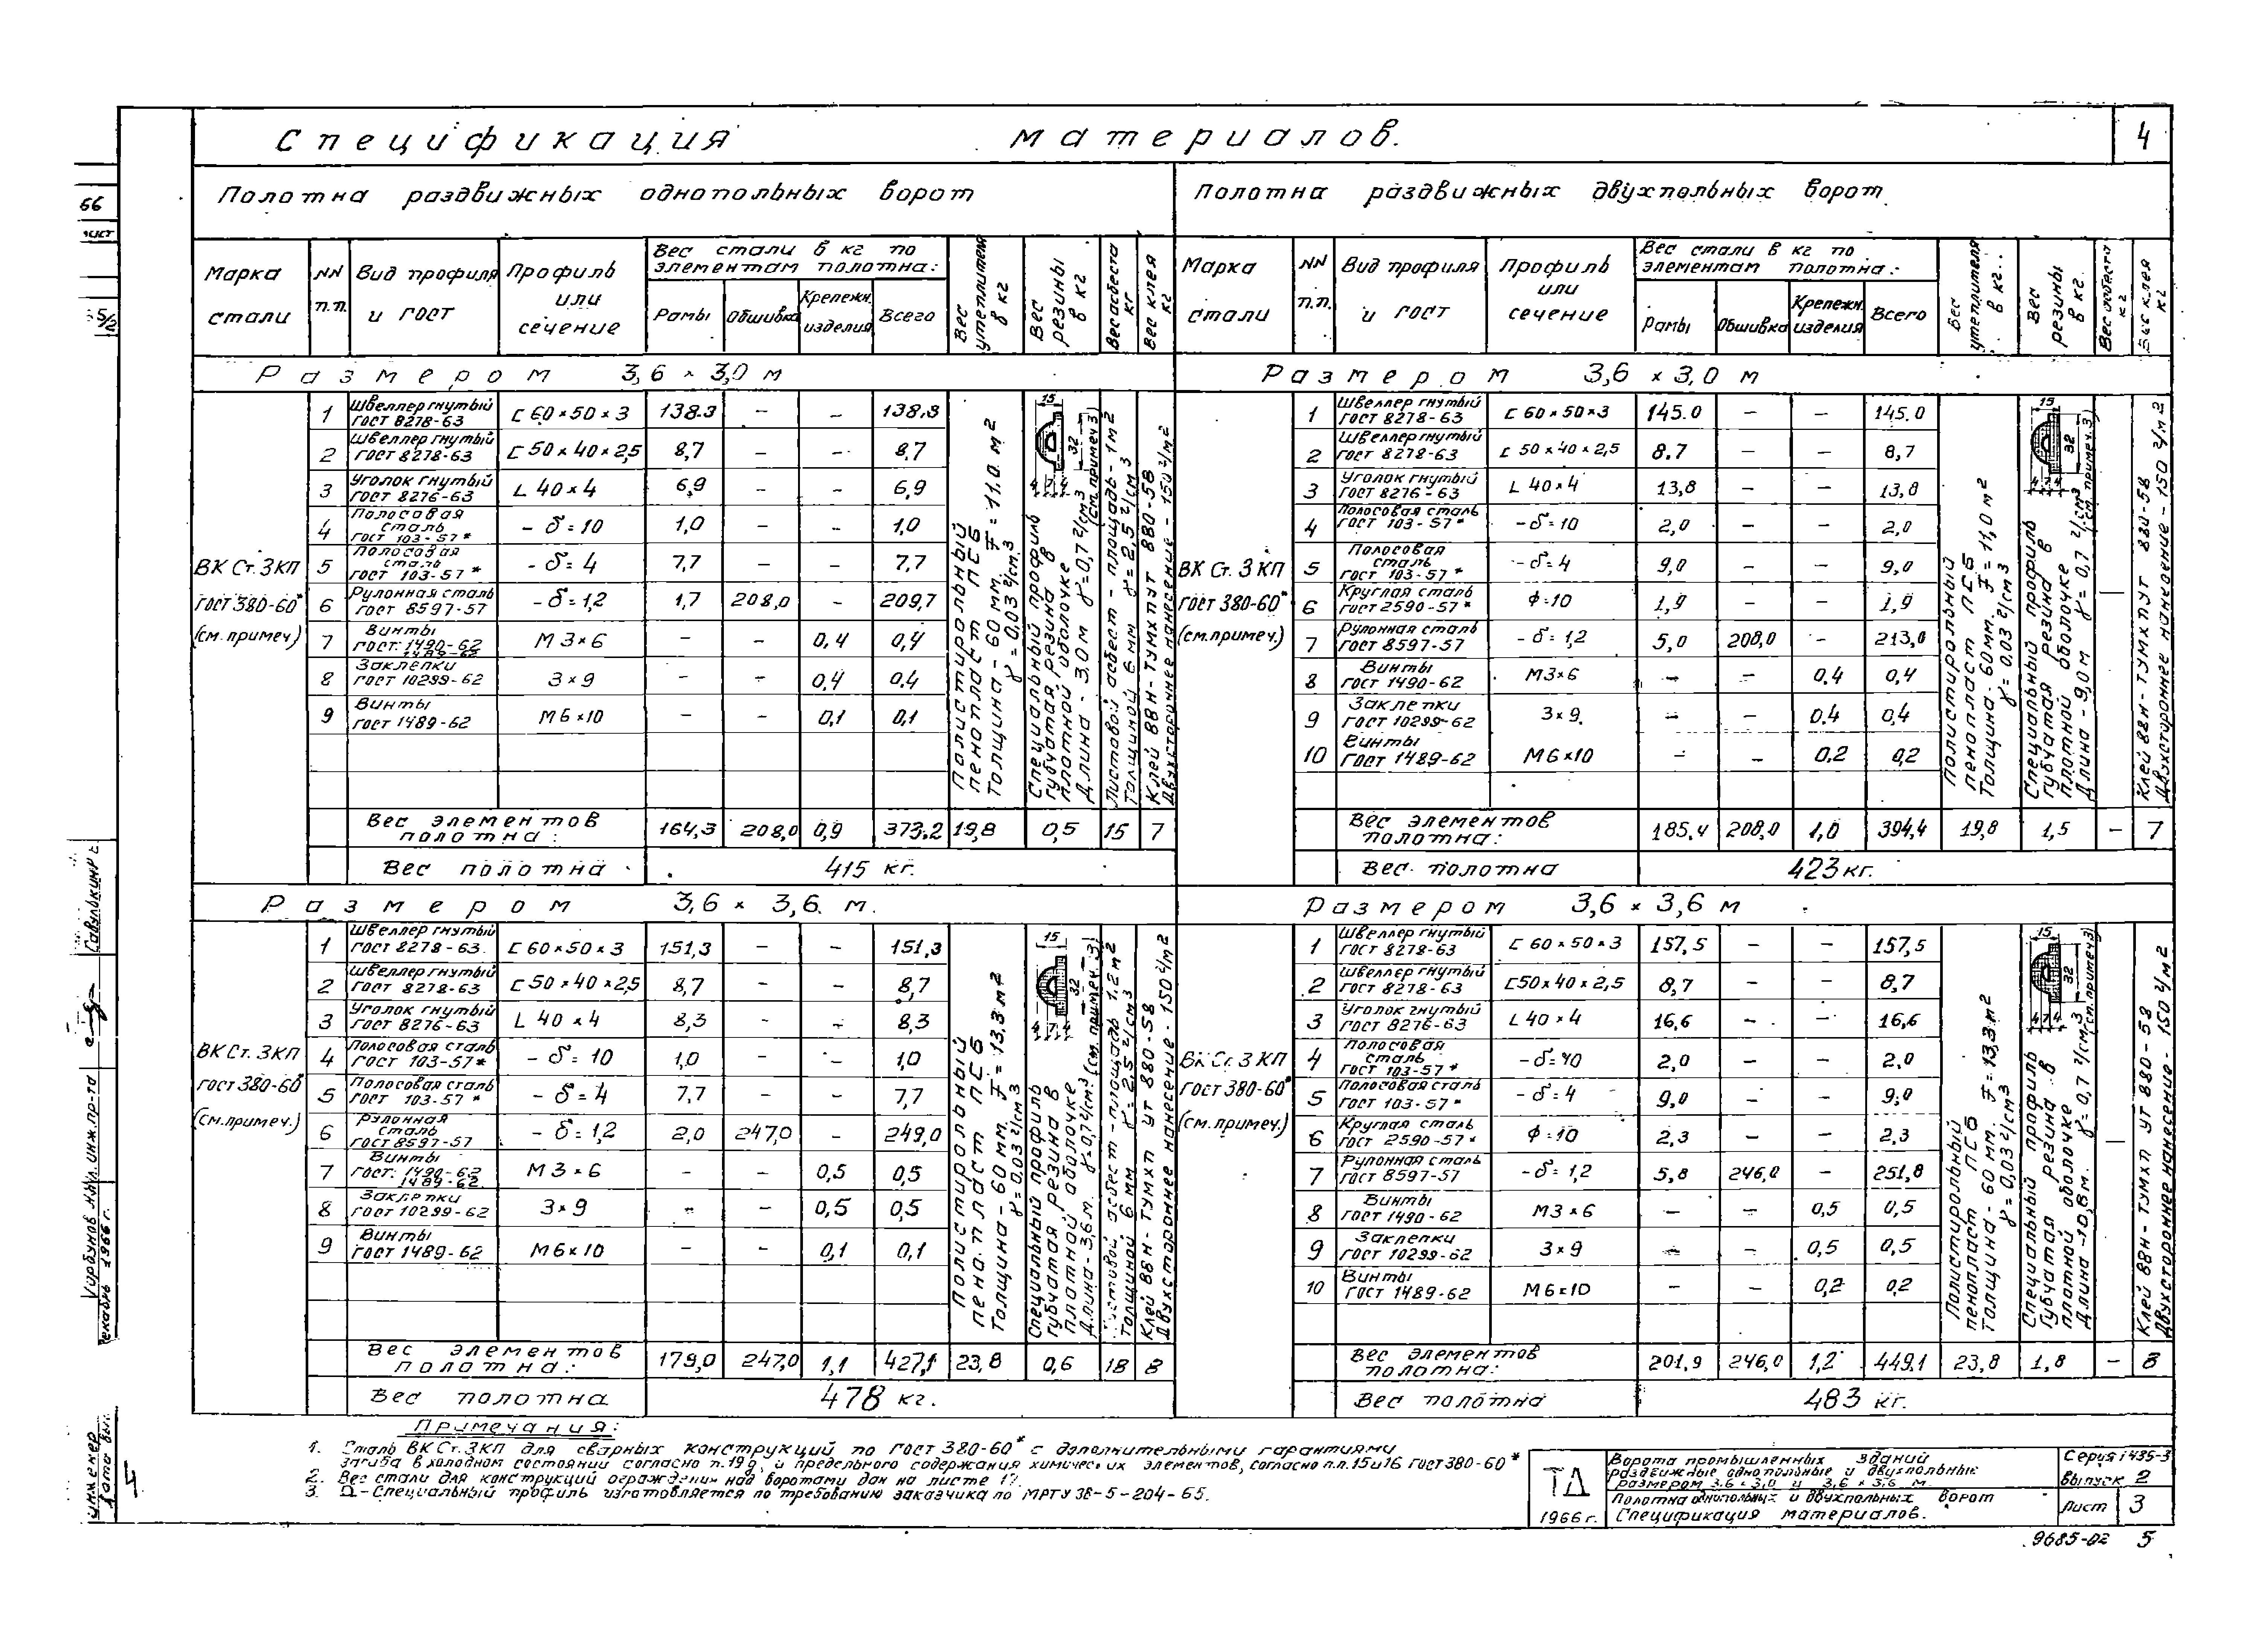 Спецификация материалов.
4
Полотна раздвижных однопольных ворот
Марка стали
NN п.п.
Вид профиля и ГОСТ
Профиль или сечение
Вес стали в кг по элементам полотна:
Рамы
Обшивка
Крепежн. изделия
Всего
Вес утеплителя в кг
Вес резины в кг
Вес асбеста кг
Вес клея кг
Размером 3,6 × 3,0 м
ВК Ст. 3 КП
ГОСТ 380-60*
(см. примеч.)
1 Швеллер гнутый ГОСТ 8278-63 [ 60×50×3 138.3 – – 138.3
2 Швеллер гнутый ГОСТ 8278-63 [ 50×40×2,5 8,7 – – 8,7
3 Уголок гнутый ГОСТ 8276-63 L 40×4 6,9 – – 6,9
4 Полосовая сталь ГОСТ 103-57* – δ=10 1,0 – – 1,0
5 Полосовая сталь ГОСТ 103-57* – δ=4 7,7 – – 7,7
6 Рулонная сталь ГОСТ 8597-57 – δ=1,2 1,7 208,0 – 209,7
7 Винты ГОСТ: 1490-62 1489-62 М 3×6 – – 0,4 0,4
8 Заклепки ГОСТ 10299-62 3×9 – – 0,4 0,4
9 Винты ГОСТ 1489-62 М6×10 – – 0,1 0,1
Полистирольный пенопласт ПСБ Толщина - 60 мм. F = 11.0 м2 γ=0,03 г/см3
15 32 4 7 4
Специальный профиль губчатая резина в плотной оболочке Длина - 3,0 м γ=0,7 г/см3 (см. примеч 3)
Листовой асбест - площадь - 1м2 толщиной 6 мм γ=2,5 г/см3
Клей 88Н - ТУМХП УТ 880-58 Двухстороннее нанесение - 150 г/м2
Вес элементов полотна: 164,3 208,0 0,9 373,2 19,8 0,5 15 7
Вес полотна 415 кг.
Размером 3,6 × 3,6 м.
ВК Ст. 3 КП
ГОСТ 380-60*
(см. примеч.)
1 Швеллер гнутый ГОСТ 8278-63. [ 60×50×3 151,3 – – 151,3
2 Швеллер гнутый ГОСТ 8278-63 [ 50×40×2,5 8,7 – – 8,7
3 Уголок гнутый ГОСТ 8276-63 L 40×4 8,3 – – 8,3
4 Полосовая сталь ГОСТ 103-57* – δ=10 1,0 – – 1,0
5 Полосовая сталь ГОСТ 103-57* – δ=4 7,7 – – 7,7
6 Рулонная сталь ГОСТ 8597-57 – δ=1,2 2,0 247,0 – 249,0
7 Винты ГОСТ: 1490-62 1489-62 М 3×6 – – 0,5 0,5
8 Заклепки ГОСТ 10299-62 3×9 – – 0,5 0,5
9 Винты ГОСТ 1489-62 М6×10 – – 0,1 0,1
Полистирольный пенопласт ПСБ Толщина - 60 мм. F = 13,3 м2 γ=0,03 г/см3
15 32 4 7 4
Специальный профиль губчатая резина в плотной оболочке Длина - 3,6 м. γ=0,7 г/см3 (см. примеч. 3)
Листовой асбест - площадь 1.2 м2 толщиной 6 мм γ=2,5 г/см3
Клей 88Н - ТУМХП УТ 880-58 Двухстороннее нанесение - 150 г/м2
Вес элементов полотна: 179,0 247,0 1,1 427,1 23,8 0,6 18 8
Вес полотна 478 кг.
Полотна раздвижных двухпольных ворот
Марка стали
NN п.п.
Вид профиля и ГОСТ
Профиль или сечение
Вес стали в кг по элементам полотна:
Рамы
Обшивка
Крепежн. изделия
Всего
Вес утеплителя в кг
Вес резины в кг.
Вес асбеста кг
Вес клея кг
Размером 3,6 × 3,0 м
ВК Ст. 3 КП
ГОСТ 380-60*
(см. примеч.)
1 Швеллер гнутый ГОСТ 8278-63 [ 60×50×3 145.0 – – 145.0
2 Швеллер гнутый ГОСТ 8278-63 [ 50×40×2,5 8.7 – – 8,7
3 Уголок гнутый ГОСТ 8276-63 L 40×4 13,8 – – 13,8
4 Полосовая сталь ГОСТ 103-57* – δ=10 2,0 – – 2,0
5 Полосовая сталь ГОСТ 103-57* – δ=4 9,0 – – 9,0
6 Круглая сталь ГОСТ 2590-57* Ф=10 1,9 – – 1,9
7 Рулонная сталь ГОСТ 8597-57 – δ=1,2 5,0 208,0 – 213,0
8 Винты ГОСТ 1490-62 М3×6 – – 0.4 0,4
9 Заклепки ГОСТ 10299-62 3×9. – – 0.4 0,4
10 Винты ГОСТ 1489-62 М6×10 – – 0.2 0,2
Полистирольный пенопласт ПСБ Толщина. 60мм. F = 11,0 м2 γ=0.03 г/см3
15 32 4 7 4
Специальный профиль губчатая резина в плотной оболочке Длина - 9,0 м γ=0,7 г/см3 (см. примеч. 3)
–
Клей 88Н - ТУМХП УТ 880-58 Двухстороннее нанесение - 150 г/м2
Вес элементов полотна: 185.4 208,0 1,0 394,4 19,8 1,5 – 7
Вес полотна 423 кг.
Размером 3,6 × 3,6 м
ВК Ст. 3 КП
ГОСТ 380-60*
(см. примеч.)
1 Швеллер гнутый ГОСТ 8278-63 [ 60×50×3 157,5 – – 157,5
2 Швеллер гнутый ГОСТ 8278-63 [50×40×2,5 8,7 – – 8,7
3 Уголок гнутый ГОСТ 8276-63 L 40×4 16,6 – – 16,6
4 Полосовая сталь ГОСТ 103-57* – δ=10 2,0 – – 2,0
5 Полосовая сталь ГОСТ 103-57* – δ=4 9,0 – – 9,0
6 Круглая сталь ГОСТ 2590-57* Ф=10 2,3 – – 2.3
7 Рулонная сталь ГОСТ 8597-57 – δ=1,2 5,8 246,0 – 251,8
8 Винты ГОСТ 1490-62 М3×6 – – 0,5 0,5
9 Заклепки ГОСТ 10299-62 3×9 – – 0,5 0,5
10 Винты ГОСТ 1489-62 М6×10 – – 0,2 0,2
Полистирольный пенопласт ПСБ Толщина - 60 мм. F = 13,3 м2 γ=0,03 г/см3
15 32 4 7 4
Специальный профиль губчатая резина в плотной оболочке Длина - 10,8 м. γ=0,7 г/см3 (см. примеч 3)
–
Клей 88Н - ТУМХП УТ 880-58 Двухстороннее нанесение - 150 г/м2
Вес элементов полотна: 201.9 246,0 1,2 449.1 23,8 1,8 – 8
Вес полотна 483 кг.
Примечания:
1. Сталь ВК Ст. 3КП для сварных конструкций по ГОСТ 380-60* с дополнительными гарантиями
загиба в холодном состоянии согласно п. 19д, и предельного содержания химических элементов, согласно п.п. 15 и 16 ГОСТ 380-60*
2. Вес стали для конструкций ограждения над воротами дан на листе 17.
3. Специальный профиль изготовляется по требованию заказчика по МРТУ 38-5-204-65.
ТД
1966 г.
Ворота промышленных зданий
раздвижные однопольные и двухпольные
размером 3.6 × 3,0 и 3,6 × 3,6 м
Полотна однопольных и двухпольных ворот
Спецификация материалов.
Серия 1435-3
выпуск 2
Лист 3
9685-02 5
66
лист
Савулькина
декабрь 1966 г.
инженер
4